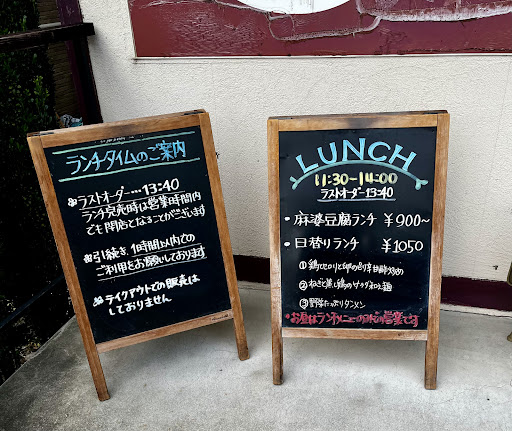 ランチタイムのご案内
※ラストオーダー…13:40
ランチ完売時は営業時間内
でも閉店となることがございます
※引続き、1時間以内での
ご利用をお願いしております
※テイクアウトでの販売は
しておりません
LUNCH
11:30-14:00
ラストオーダー13:40
・麻婆豆腐ランチ ¥900~
・日替りランチ ¥1050
①鶏
②ねぎと蒸し鶏の
③野菜たっぷりタンメン
*お昼はランチメニューのみの営業です